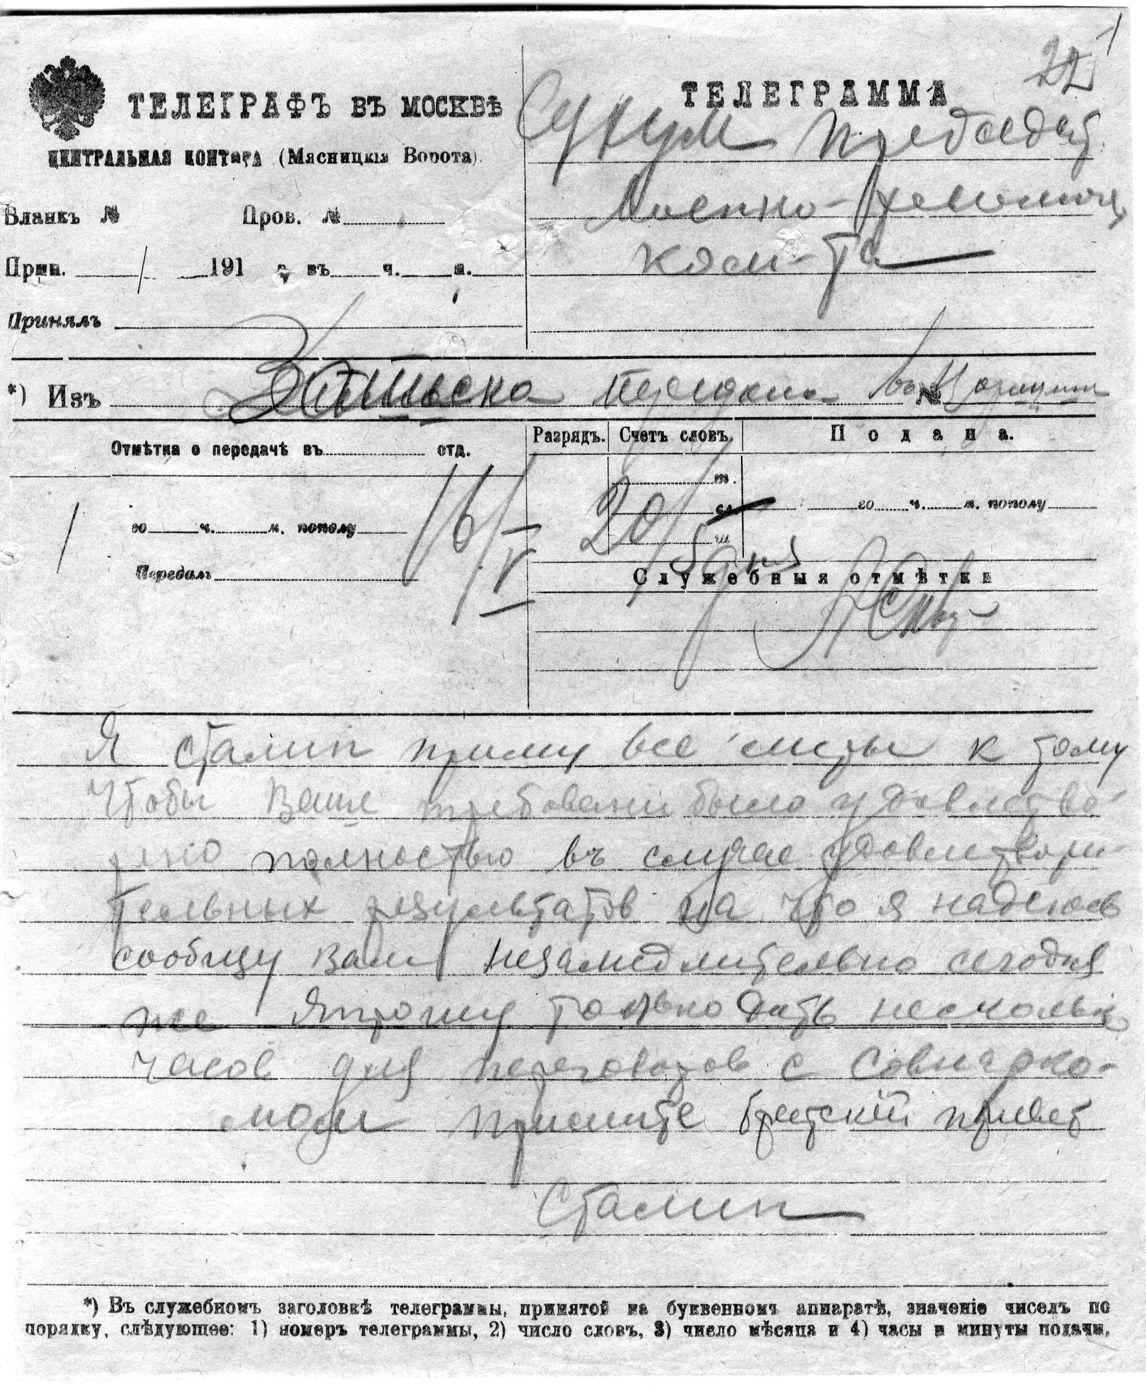 22 1
ТЕЛЕГРАФЪ ВЪ МОСКВѢ
ЦЕНТРАЛЬНАЯ КОНТОРА (Мясницкія Ворота).
Бланкъ №
Пров. №
Прин. 191 г. въ ч. м.
Принялъ
ТЕЛЕГРАММА
Сухум председат
Военно-революц
ком-та
*) Изъ
Отмѣтка о передачѣ въ отд.
го ч. м. пополу
Передалъ
16/V
Разрядъ.
Счетъ словъ.
Подана.
20/V
го ч. м. пополу
Служебныя отмѣтки
Я Сталин приму все меры к тому
чтобы Ваше требовани было удовлетво-
рено полностью въ случае удовлетвори-
тельных результатов на что я надеюсь
сообщу вам незамедлительно сегодня
же Япрошу только дать несколько
часов для переговоров с Совнарко-
мом примите братский привет
Сталин
*) Въ служебномъ заголовкѣ телеграммы, принятой на буквенномъ аппаратѣ, значеніе чиселъ по
порядку, слѣдующее: 1) номеръ телеграммы, 2) число словъ, 3) число мѣсяца и 4) часы и минуты подачи.